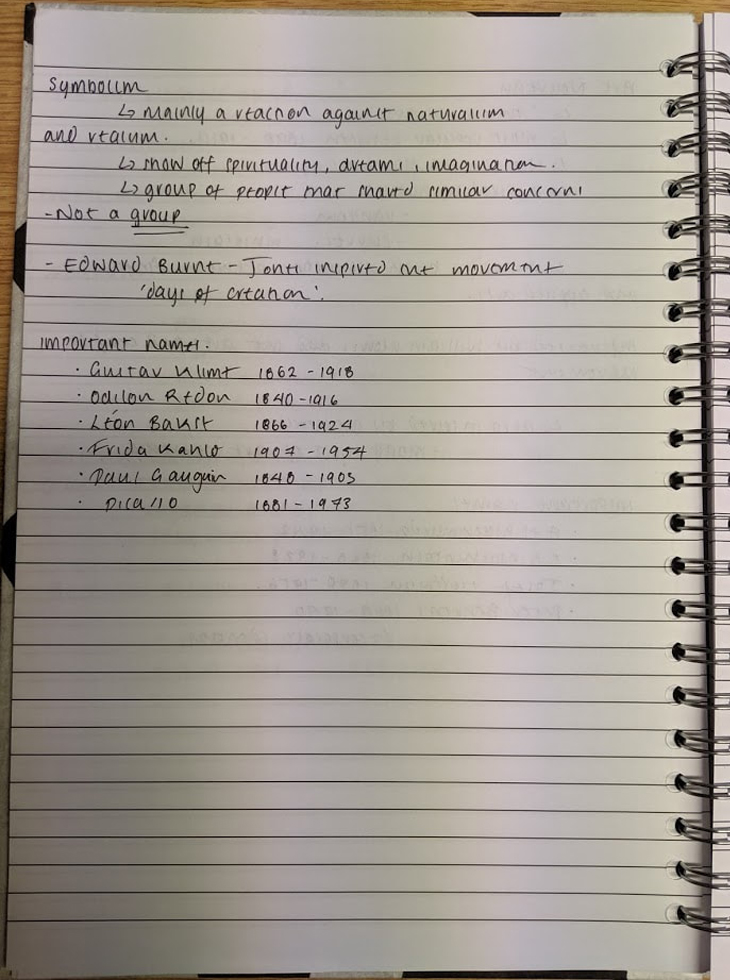 Symbolism
↳ mainly a reaction against naturalism
and realism.
↳ show off spirituality, dreams, imagination.
↳ group of people that shared similar concerns
- Not a group
- Edward Burne-Jones inspired the movement
'days of creation'.
Important names.
· Gustav Klimt 1862 - 1918
· Odilon Redon 1840 - 1916
· Léon Bakst 1866 - 1924
· Frida Kahlo 1907 - 1954
· Paul Gauguin 1848 - 1903
· Picasso 1881 - 1973